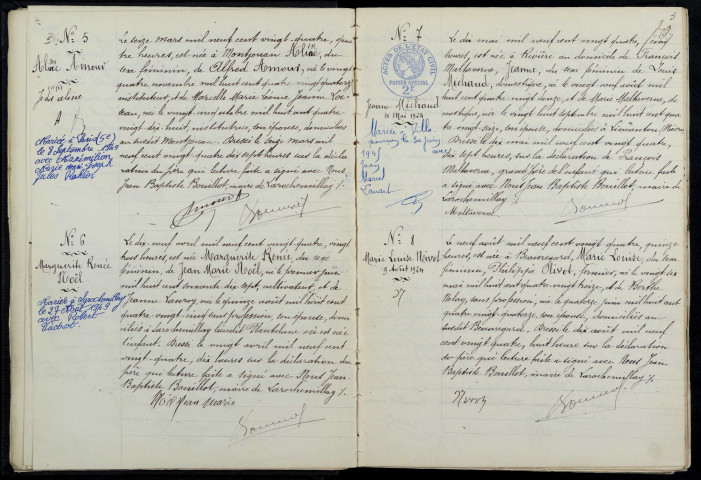 N° 5
Aline Amour
Mariée à Paris (5e)
le 8 Septembre 1949
avec Maximilien
Marie Joseph
Jules Mahler
Le seize mars mil neuf cent vingt-quatre, quatre
heures, est née à Montjouan Aline, du
sexe féminin, de Alfred Amour, né le vingt
quatre novembre mil huit cent quatre vingt quatorze
instituteur, et de Marcelle Marie Léonie Jeanne
née le vingt cinq octobre mil huit cent quatre
vingt dix-huit, institutrice, son épouse, domiciliés
au susdit Montjouan. Dressé le seize mars mil
neuf cent vingt quatre dix sept heures sur la décla-
ration du père qui lecture faite a signé avec Nous,
Jean Baptiste Bouillot, maire de Larochemillay ./.
Amour
N° 6
Marguerite Renée
Noël
Mariée à Larochemillay
le 27 Août 1949
avec Robert
Le dix-neuf avril mil neuf cent vingt-quatre, vingt
trois heures, est née Marguerite Renée, du sexe
féminin, de Jean Marie Noël, né le premier juin
mil huit cent soixante dix sept, cultivateur, et de
Jeanne Lavry, née le quinze août mil huit cent
quatre vingt cinq sans profession, son épouse, domi-
ciliés à Larochemillay où est née
l'enfant. Dressé le vingt avril mil neuf cent
vingt-quatre, dix heures sur la déclaration du
père qui lecture faite a signé avec Nous Jean
Baptiste Bouillot, maire de Larochemillay ./.
Noël Jean Marie
N° 7
ACTES DE L'ÉTAT CIVIL
PAPIER SPÉCIAL
2F
Jeanne Michaud
10 Mai 1924
Mariée à Ville
le 30 juin
1945 avec
Marcel
Le dix mai mil neuf cent vingt quatre, cinq
heures, est née à Rivière au domicile de François
Maltaverne, Jeanne, du sexe féminin de Louis
Michaud, domestique, né le vingt neuf août mil
huit cent quatre vingt douze, et de Marie Maltaverne, do-
mestique, née le vingt septembre mil huit cent qua-
tre vingt seize, son épouse, domiciliés à
Dressé le dix mai mil neuf cent vingt quatre,
dix sept heures, sur la déclaration de François
Maltaverne, grand-père de l'enfant qui lecture faite
a signé avec Nous Jean Baptiste Bouillot, maire de
Larochemillay
Maltaverne
N° 8
Marie Louise Nivot
9 Août 1924
Le neuf août mil neuf cent vingt quatre, quinze
heures, est née à Beauregard, Marie Louise, du sexe
féminin, de Philippe Nivot, fermier, né le vingt dix
mil huit cent quatre-vingt treize, et de Berthe
sans profession, née le quatorze juin mil huit cent
quatre vingt quinze, son épouse, domiciliés au
susdit Beauregard. Dressé le dix août mil neuf
cent vingt quatre, huit heures sur la déclaration
du père qui lecture faite a signé avec Nous Jean
Baptiste Bouillot, maire de Larochemillay ./.
Nivot